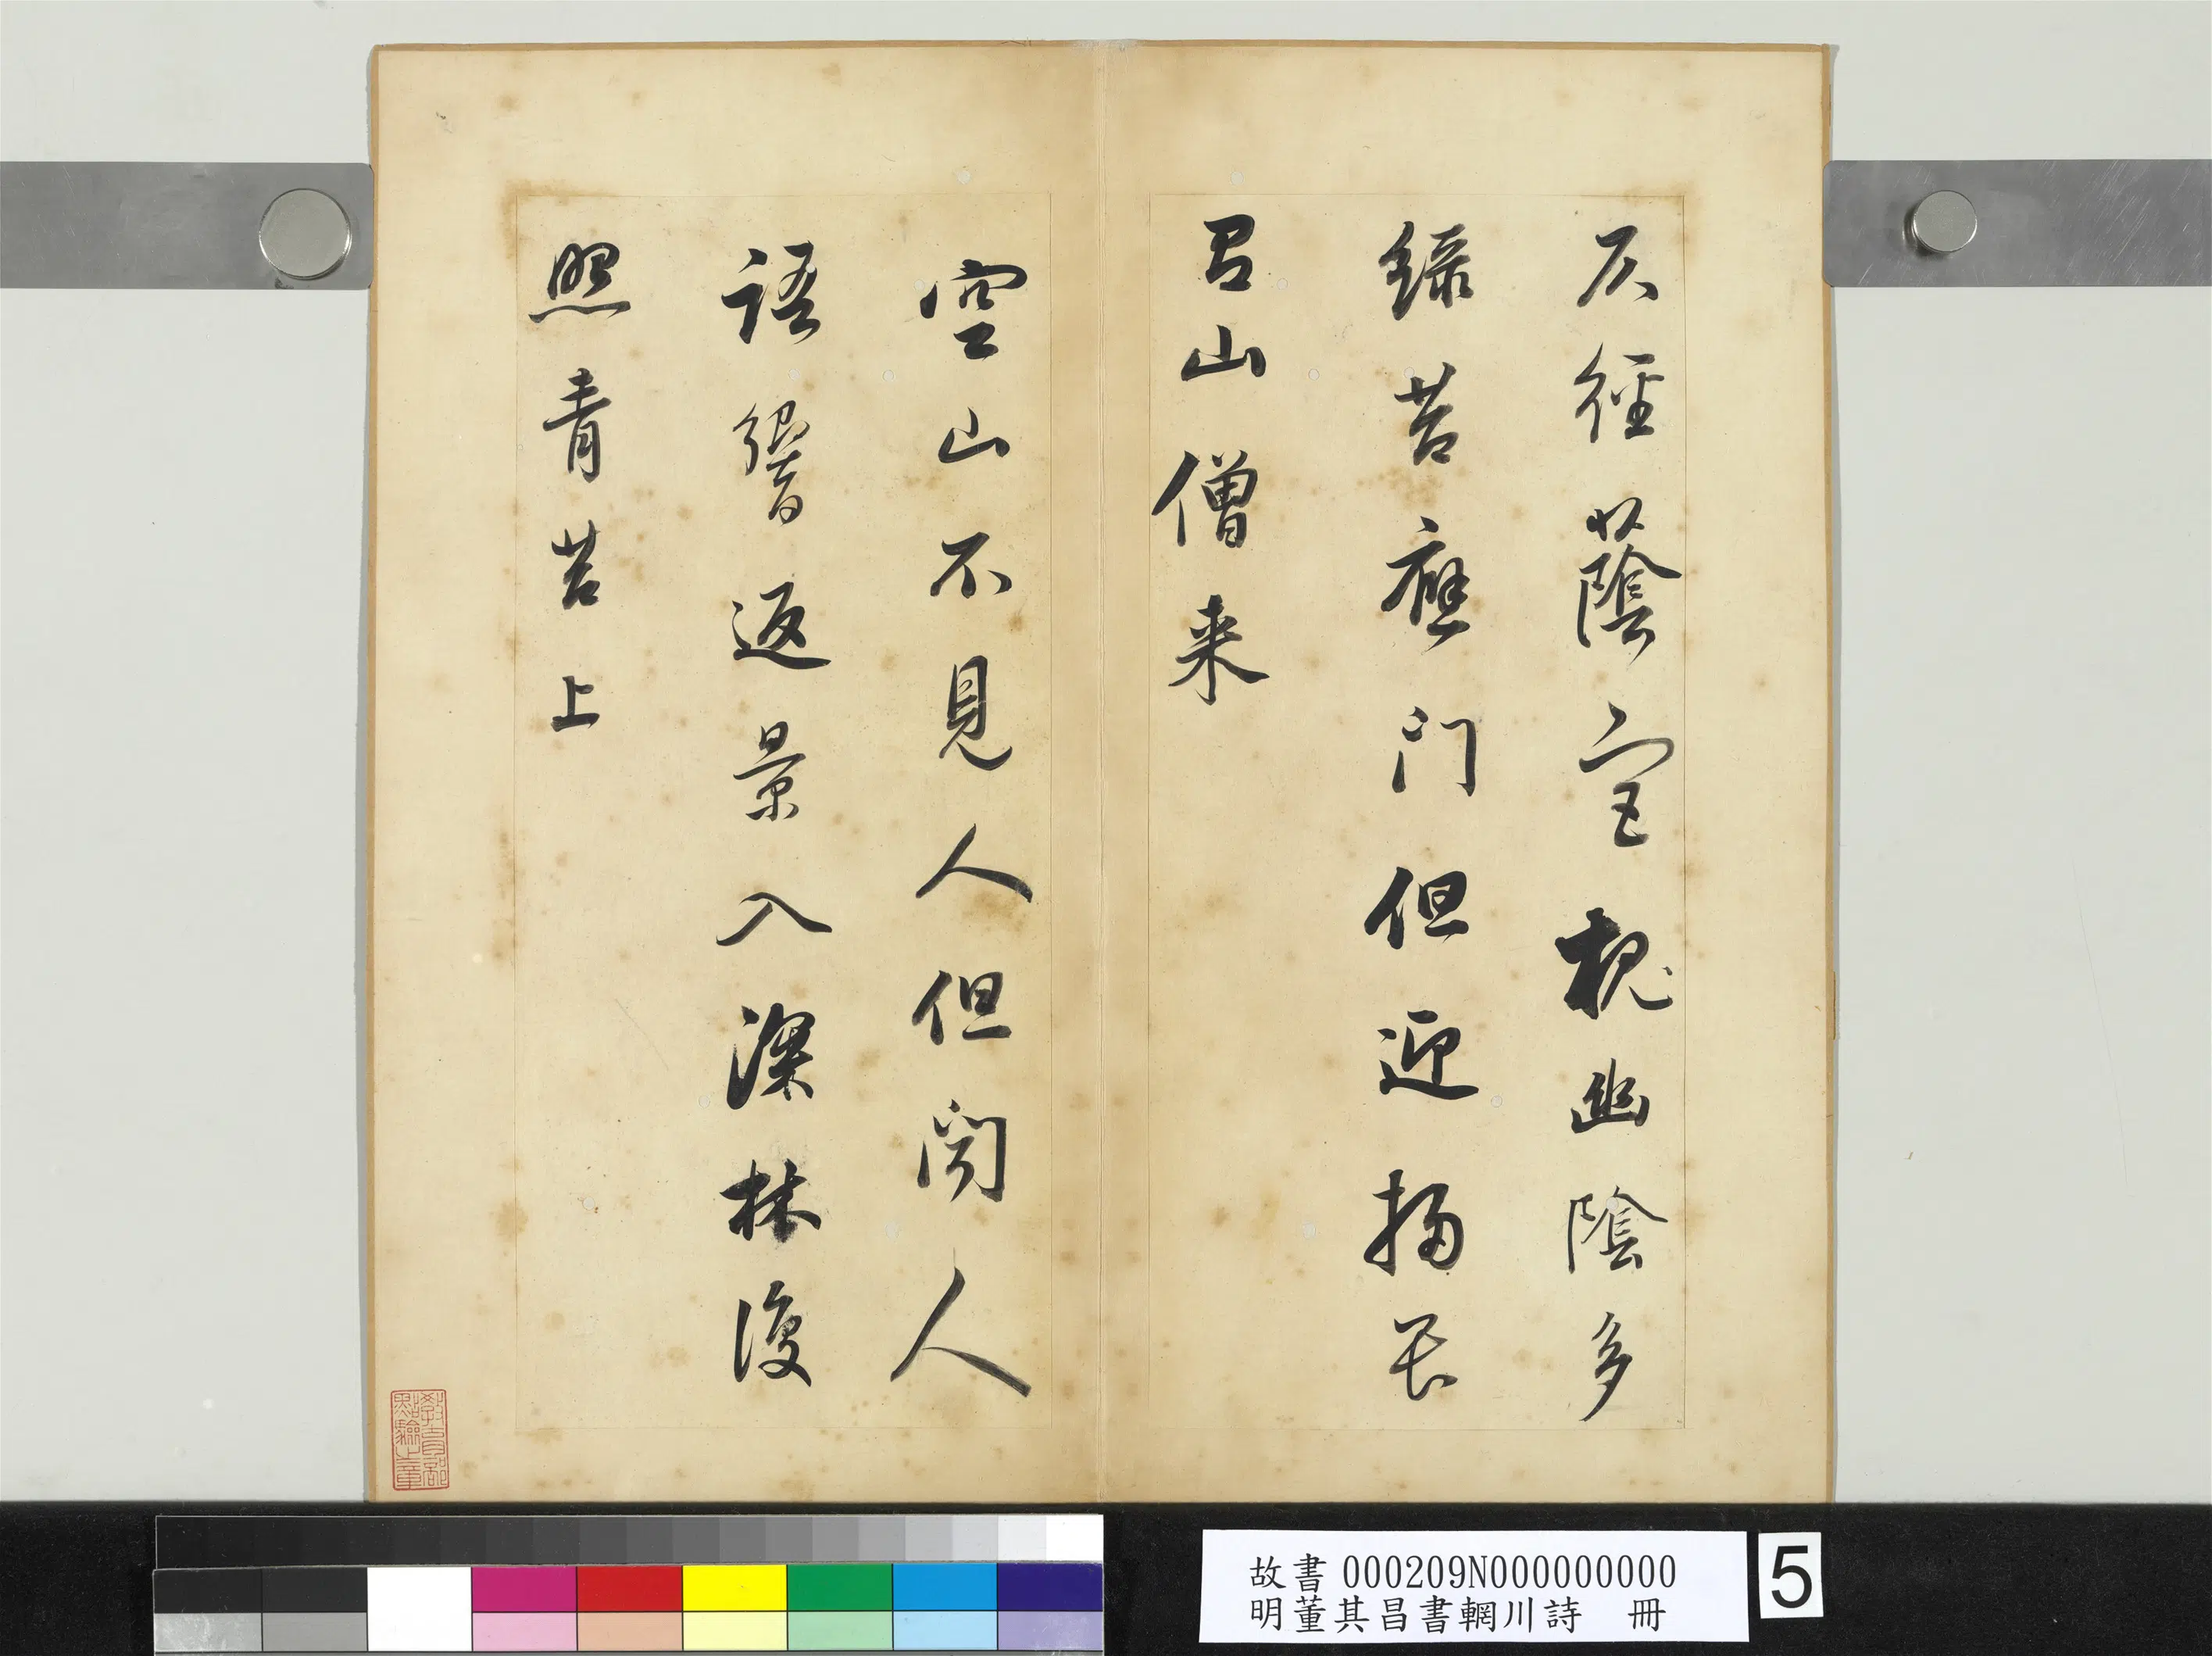 仄徑蔭宮槐幽陰多
綠苔應門但迎掃畏
有山僧来
空山不見人但聞人
語響返景入深林復
照青苔上
教育部
點驗之章
故書 000209N000000000
明董其昌書輞川詩 冊
5